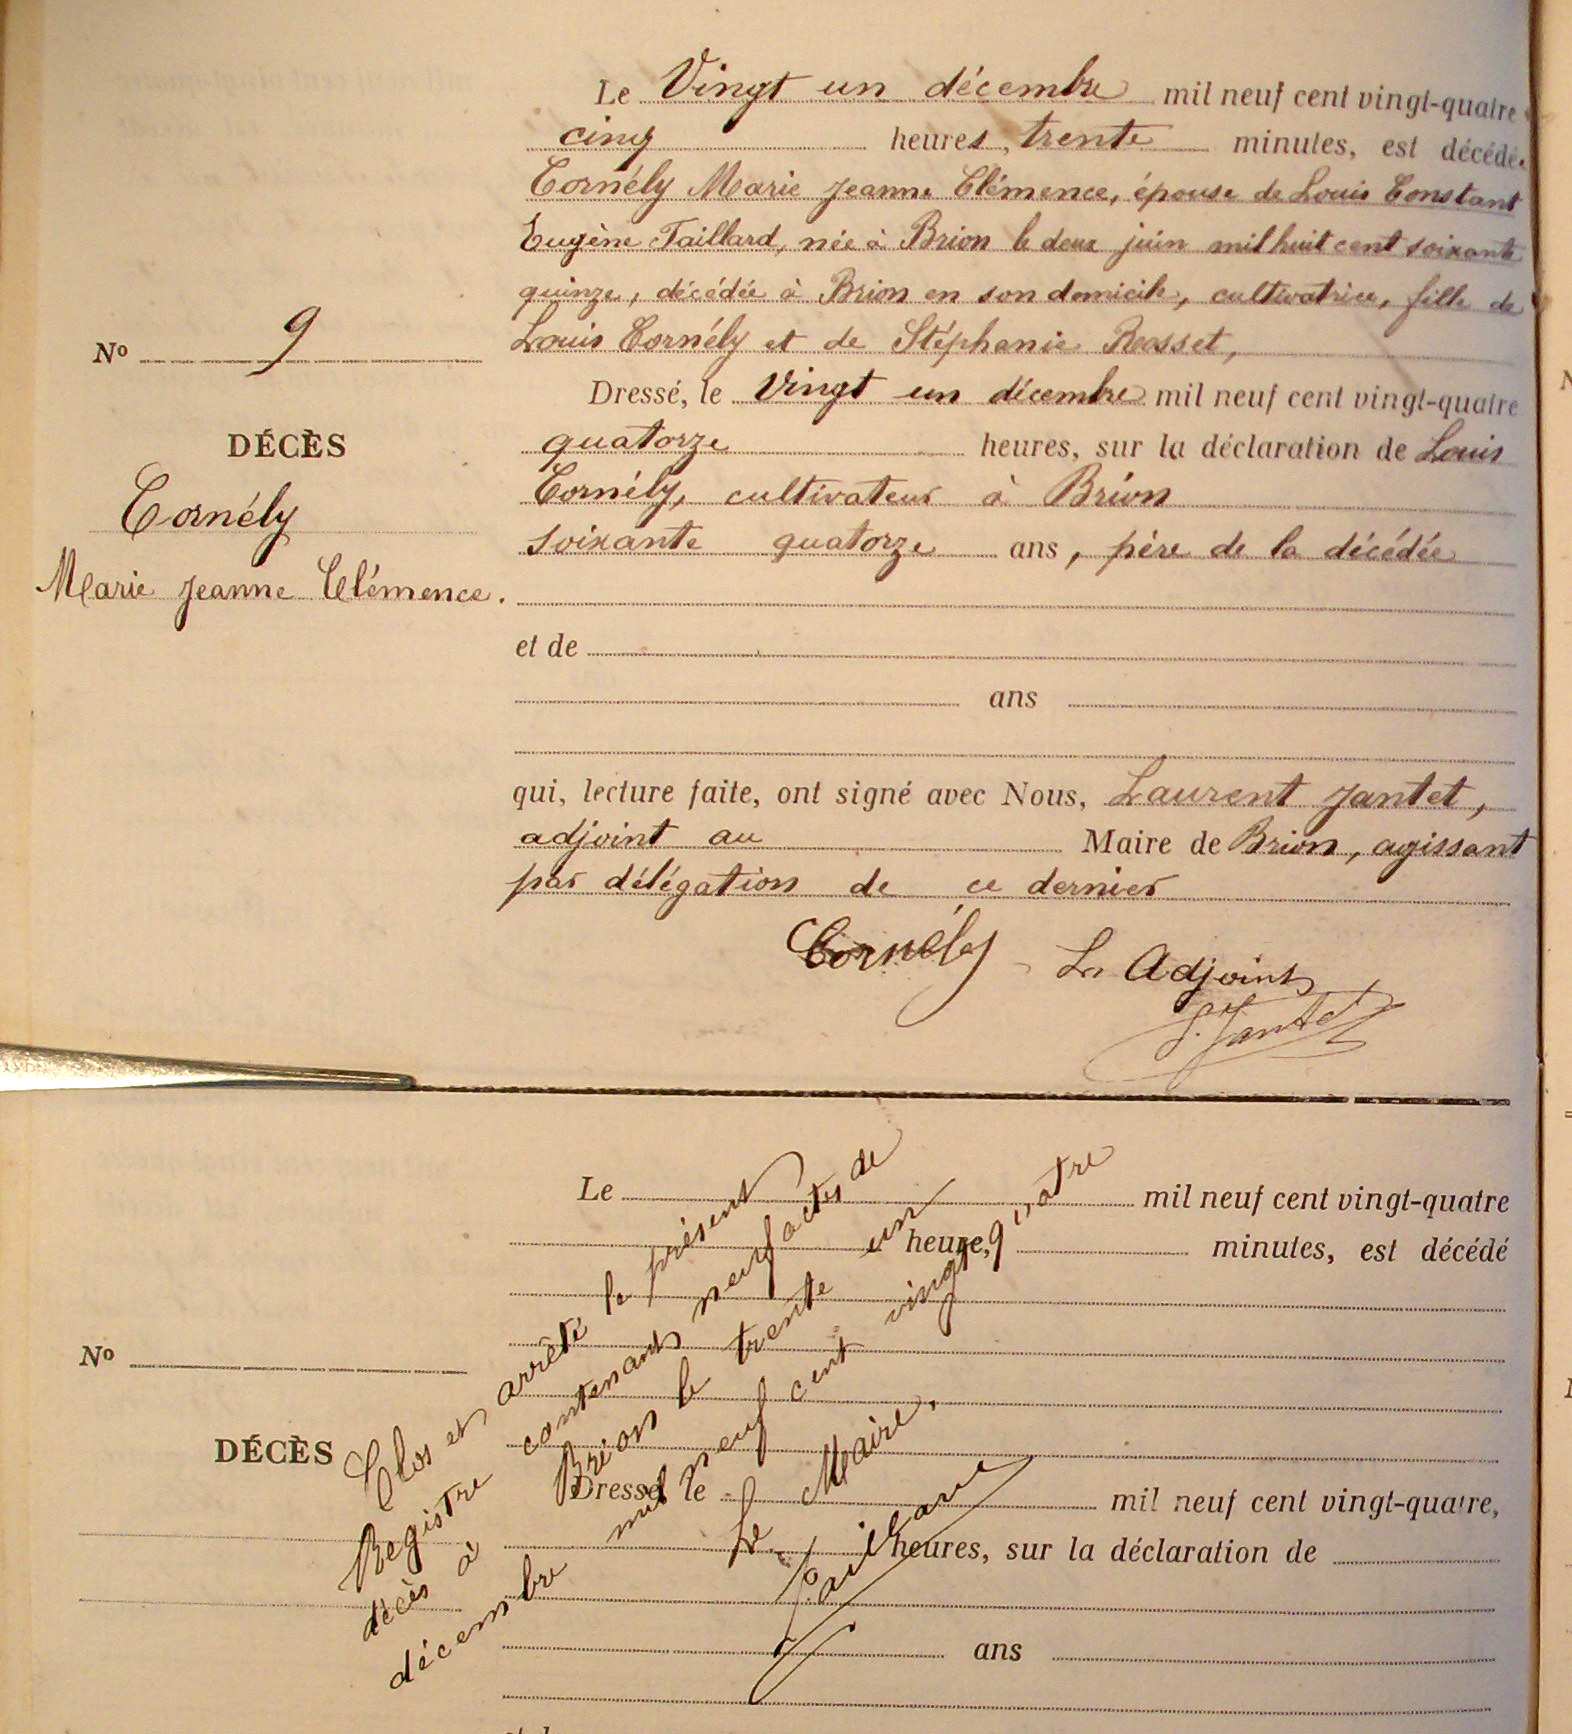 Le Vingt un décembre mil neuf cent vingt-quatre
cinq heures, trente minutes, est décédée
Cornély Marie Jeanne Clémence, épouse de Louis Constant
Eugène Taillard, née à Brion le deux juin mil huit cent soixante
quinze, décédée à Brion en son domicile, cultivatrice, fille de
Louis Cornély et de Stéphanie Rosset,
No 9
Dressé, le Vingt un décembre mil neuf cent vingt-quatre
quatorze heures, sur la déclaration de Louis
Cornély, cultivateur à Brion
soixante quatorze ans, père de la décédée
DÉCÈS
Cornély
Marie Jeanne Clémence.
et de
ans
qui, lecture faite, ont signé avec Nous, Laurent Jantet,
adjoint au Maire de Brion, agissant
par délégation de ce dernier
Cornély Le Adjoint
L. Jantet
Le mil neuf cent vingt-quatre
heure, minutes, est décédé
No
DÉCÈS
Dressé, le mil neuf cent vingt-quatre,
heures, sur la déclaration de
ans
Clos et arrêté le présent
Registre contenant neuf actes de
décès à Brion le trente un
décembre mil neuf cent vingt quatre
Le Maire,